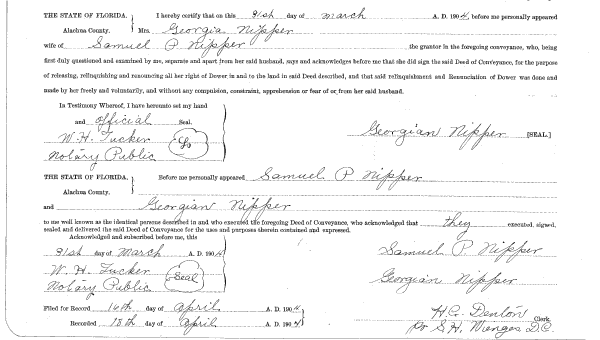 THE STATE OF FLORIDA. } I hereby certify that on this 31st day of March A. D. 1904, before me personally appeared
Alachua County. Mrs. Georgia Nipper
wife of Samuel P Nipper the grantor in the foregoing conveyance, who, being
first duly questioned and examined by me, separate and apart from her said husband, says and acknowledges before me that she did sign the said Deed of Conveyance, for the purpose
of releasing, relinquishing and renouncing all her right of Dower in and to the land in said Deed described, and that said relinquishment and Renunciation of Dower was done and
made by her freely and voluntarily, and without any compulsion, constraint, apprehension or fear of or from her said husband.
In Testimony Whereof, I have hereunto set my hand
and official Seal.
W. H. Tucker
Notary Public
Georgian Nipper [SEAL.]
THE STATE OF FLORIDA. } Before me personally appeared Samuel P Nipper
Alachua County.
and Georgian Nipper
to me well known as the identical persons described in and who executed the foregoing Deed of Conveyance, who acknowledged that they executed, signed,
sealed and delivered the said Deed of Conveyance for the uses and purposes therein contained and expressed.
Acknowledged and subscribed before me, this
31st day of March A. D. 1904
W. H. Tucker Seal
Notary Public
Samuel P Nipper
Georgian Nipper
Filed for Record 16th day of April A. D. 1904
Recorded 18th day of April A. D. 1904
H. C. Denton Clerk
S. H. D. C.